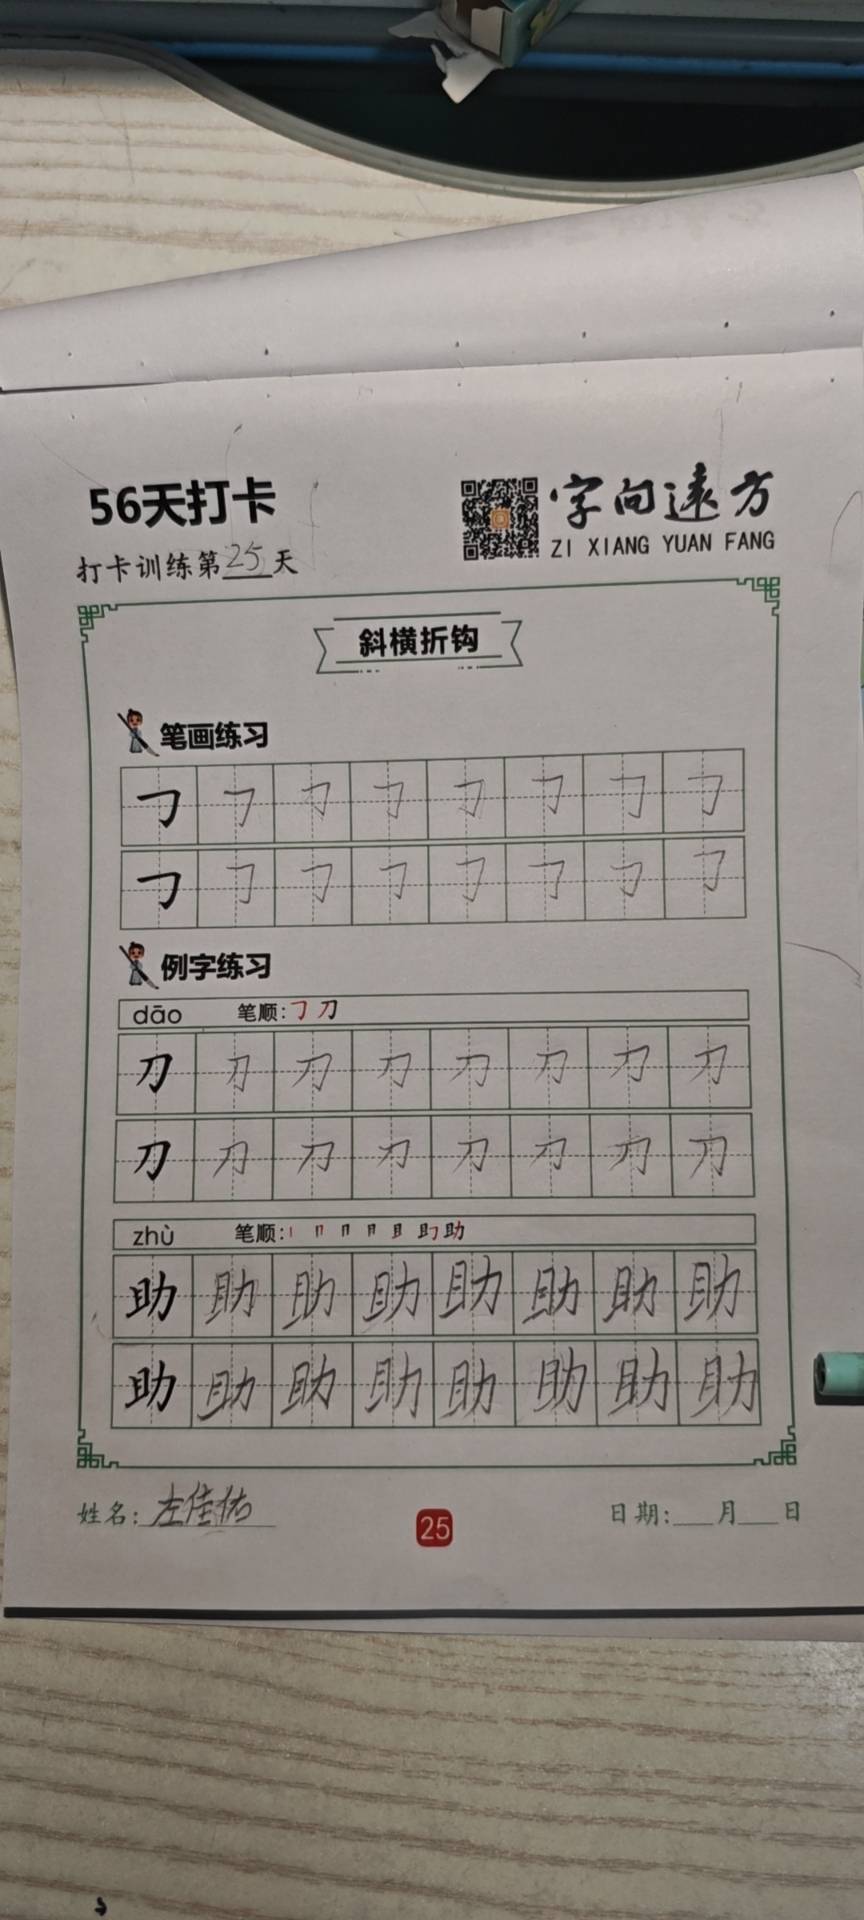 56天打卡
字向远方
ZI XIANG YUAN FANG
打卡训练第25天
斜横折钩
笔画练习
𠃌 𠃌 𠃌 𠃌 𠃌 𠃌 𠃌 𠃌
𠃌 𠃌 𠃌 𠃌 𠃌 𠃌 𠃌 𠃌
例字练习
dāo 笔顺:𠃌 刀
刀 刀 刀 刀 刀 刀 刀 刀
刀 刀 刀 刀 刀 刀 刀 刀
zhù 笔顺:
助 助 助 助 助 助 助 助
助 助 助 助 助 助 助 助
姓名:左佳佑
25
日期:___月___日